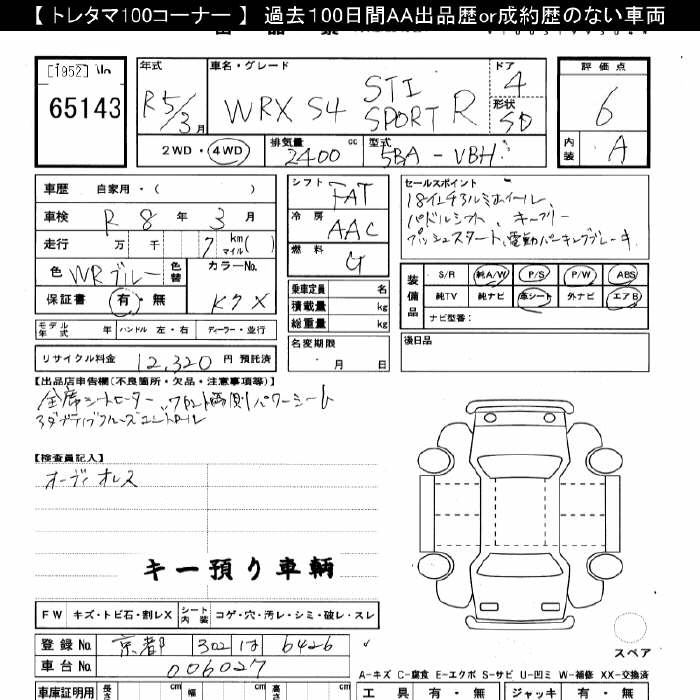 【 トレタマ100コーナー 】 過去100日間AA出品歴or成約歴のない車両
[1952] No
65143
年式 R5/3月
車名・グレード WRX S4 STI SPORT R
ドア 4
形状 SD
評価点 6
内装 A
2WD・4WD
排気量 2400 cc
型式 5BA-VBH
車歴 自家用・( )
車検 R 8 年 3 月
走行 万 千 7 km マイル( )
色 WRブルー 色替
カラーNo. K7X
保証書 有・無
シフト FAT
冷房 AAC
燃料 G
セールスポイント
18インチアルミホイール、
パドルシフト、キーフリー
プッシュスタート、電動パーキングブレーキ
乗車定員 名
積載量 kg
総重量 kg
装備品 S/R 純A/W P/S P/W ABS
純TV 純ナビ 革シート 外ナビ エアB
ナビ型番:
モデル年式 年 ハンドル 左・右 ディーラー・並行
名変期限 月 日
後日品
リサイクル料金 12,320 円 預託済
【出品店申告欄(不良箇所・欠品・注意事項等)】
全席シートヒーター、フロント両側パワーシート
アダプティブクルーズコントロール
【検査員記入】
オーディオレス
キー預り車輌
FW キズ・トビ石・割レX シート内装 コゲ・穴・汚レ・シミ・破レ・スレ
登録No. 京都 302 は 6426
車台No. 006027
スペア
A-キズ C-腐食 E-エクボ S-サビ U-凹ミ W-補修 XX-交換済
車庫証明用 長さ cm 幅 cm 高さ cm
工具 有・無 ジャッキ 有・無